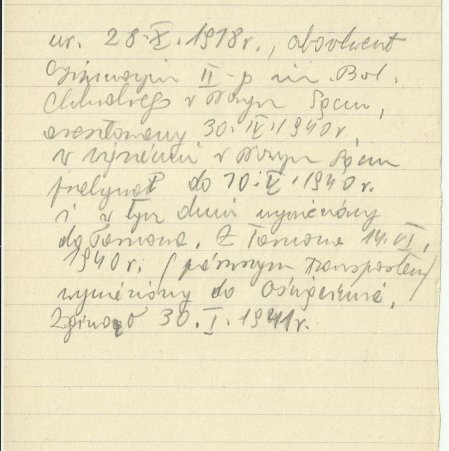 ur. 28.X.1918r., absolwent
Gimnazjum II-p im. Bol.
Chrobrego w Nowym Sączu,
aresztowany 30.IV.1940r.
w więzieniu w Nowym Sączu
przebywał do 10.V.1940r.
i w tym dniu wywieziony
do Tarnowa. Z Tarnowa 14.VI.
1940r. /pierwszym transportem/
wywieziony do Oświęcimia.
Zginął 30.I.1941r.